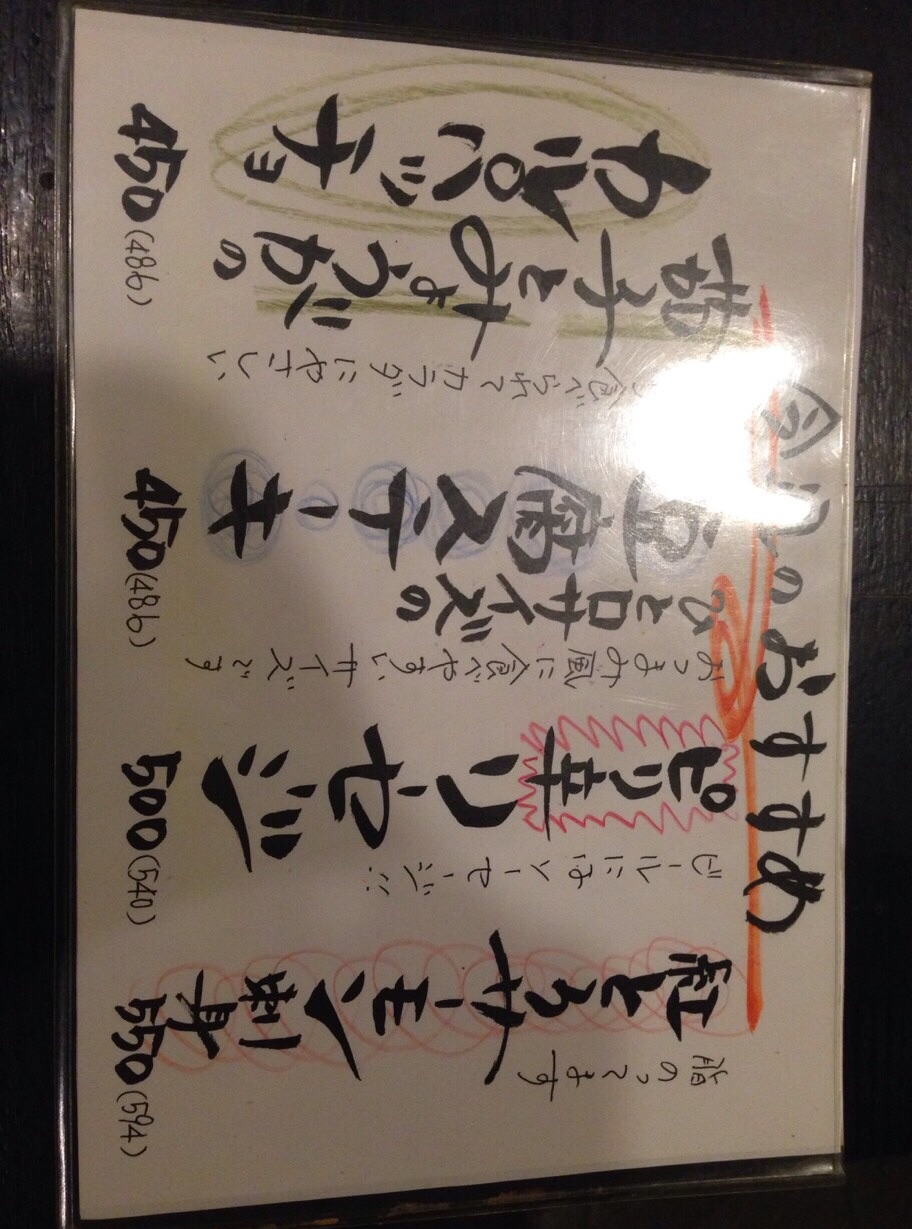 今月のおすすめ
脂のってます
紅とろサーモン刺身
550(594)
ビールにはソーセージ!!
ピリ辛ソーセージ
500(540)
おつまみ風に食べやすいサイズです
ひと口サイズの
豆腐ステーキ
450(486)
食べられてカラダにやさしい
茄子とみょうがの
カルパッチョ
450(486)